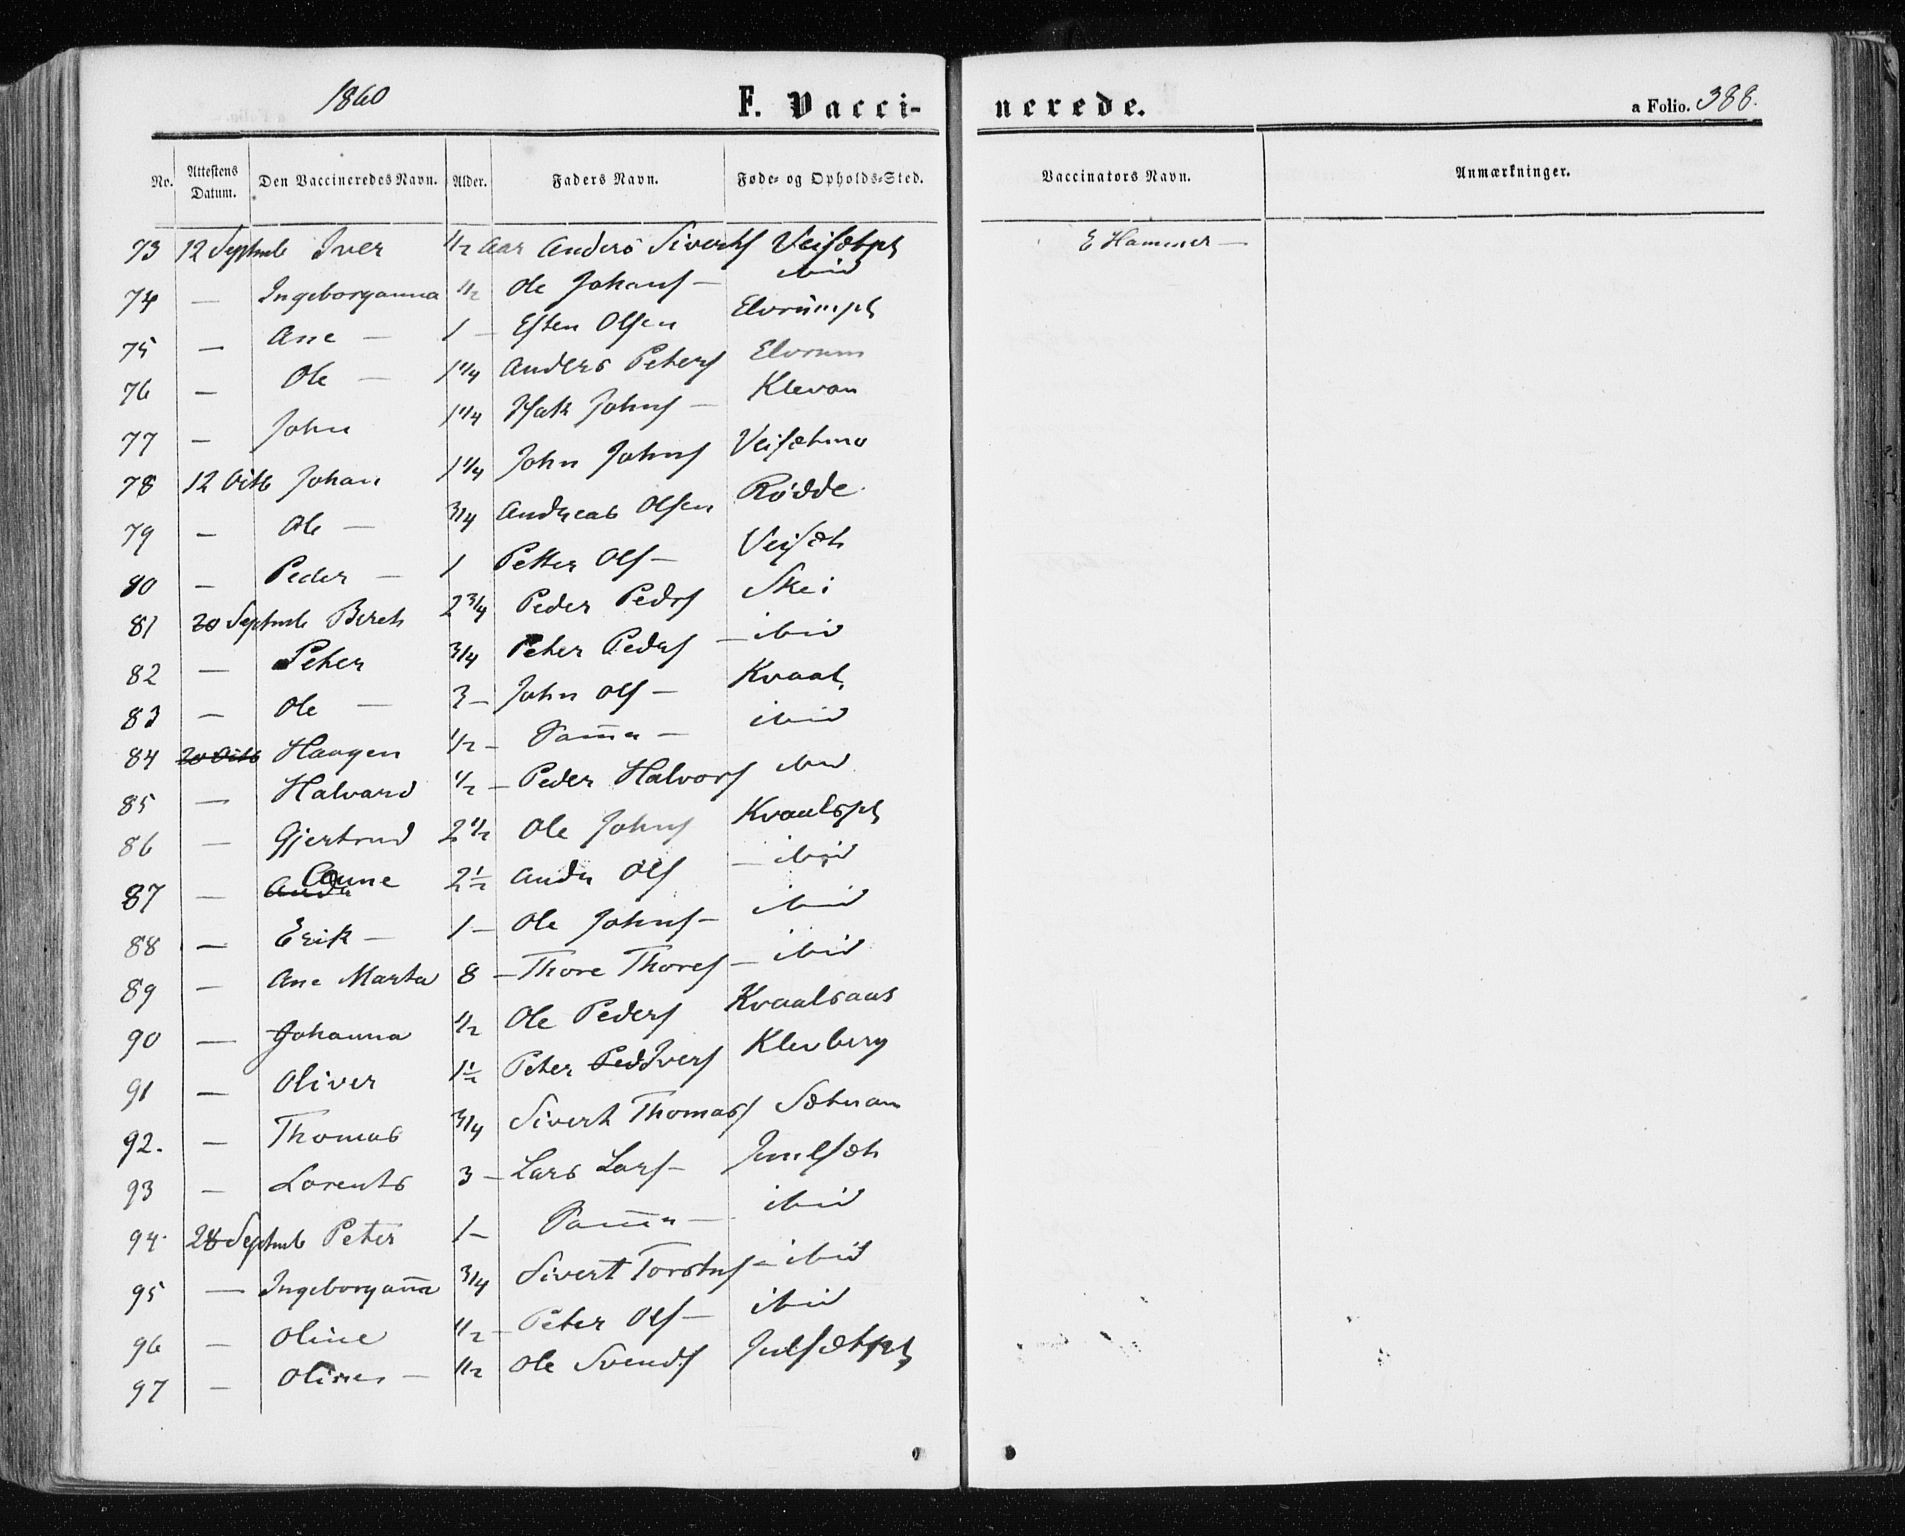 1860 F. Vacci- nerede. a Folio. 388.
No. Attestens Datum. Den Vaccineredes Navn. Alder. Faders Navn. Føde- og Opholds-Sted. Vaccinators Navn. Anmærkninger.
73 12 Septemb Iver 1/2 Aar Anders Siverts Veisætpl E Hammer —
74 — Ingeborganna 1/2 Ole Johans — ibid
75 — Ane — 1 — Esten Olsen Elvrumpl
76 — Ole — 1 1/4 Anders Peters Elvrum
77 — John 1 1/4 Isak Johns — Klevan
78 12 Octb Johan 1 1/4 John Johns Veisetmo
79 — Ole — 3/4 Andreas Olsen Rødde
80 — Peder — 1 Petter Ols — Veiseth
81 20 Septemb Bereth 2 3/4 Peder Peders Skei
82 — Peter 3/4 Peter Peders — ibid
83 — Ole — 3 — John Ols — Kvaal
84 20 Octb Haagen 1/2 — Samme — ibid
85 — Halvard 1/2 — Peder Halvors ibid
86 — Gjertrud 2 1/2 Ole Johns Kvaalspl
87 — Anders Anne 2 1/2 Anders Ols — ibid
88 — Erik — 1 — Ole Johns — ibid
89 — Ane Marta 8 — Thore Thores — ibid
90 — Johanna 1/2 Ole Peders Kvaalsaas
91 — Oliver 1 1/2 Peter Ped Ivers Klevberg
92. — Thomas 3/4 Sivert Thomas Sætran
93 — Lorents 3 — Lars Lars — Juulsæth
94. 28 Septemb Peter 1 — Samme — ibid
95 — Ingeborganna 3/4 Sivert Torstens — ibid
96 — Oline 1/2 — Peter Ols — ibid
97 — Oline — 1/2 Ole Svends Julsætpl